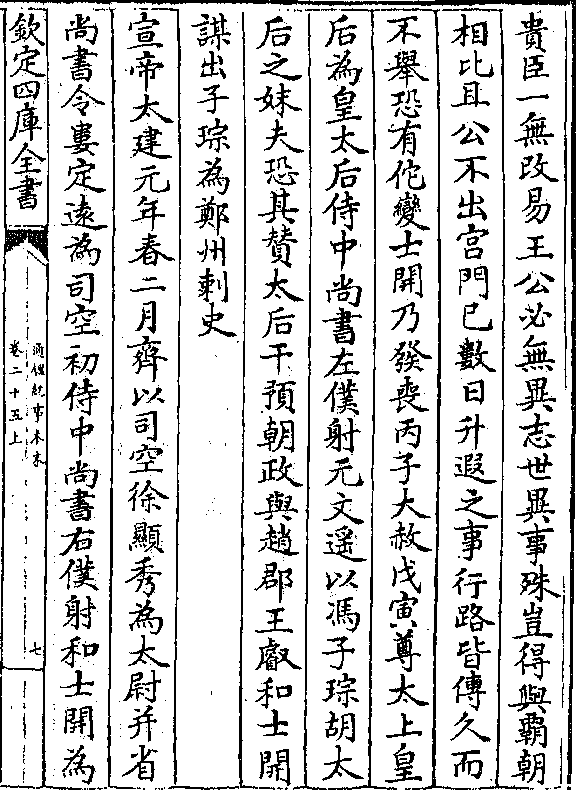 貴臣一無改易王公必無異志世異事殊豈得與霸朝
相比且公不出宮門已數日升遐之事行路皆傳久而
不舉恐有佗變士開乃發喪丙子大赦戊寅尊太上皇
后為皇太后侍中尚書左僕射元文遥以馮子琮胡太
后之妹夫恐其贊太后干預朝政與趙郡王叡和士開
謀出子琮為鄭州刺史
宣帝太建元年春二月齊以司空徐顯秀為太尉并省
尚書令婁定遠為司空初侍中尚書右僕射和士開為
欽定四庫全書
通鑑紀事本末
卷二十五上
七